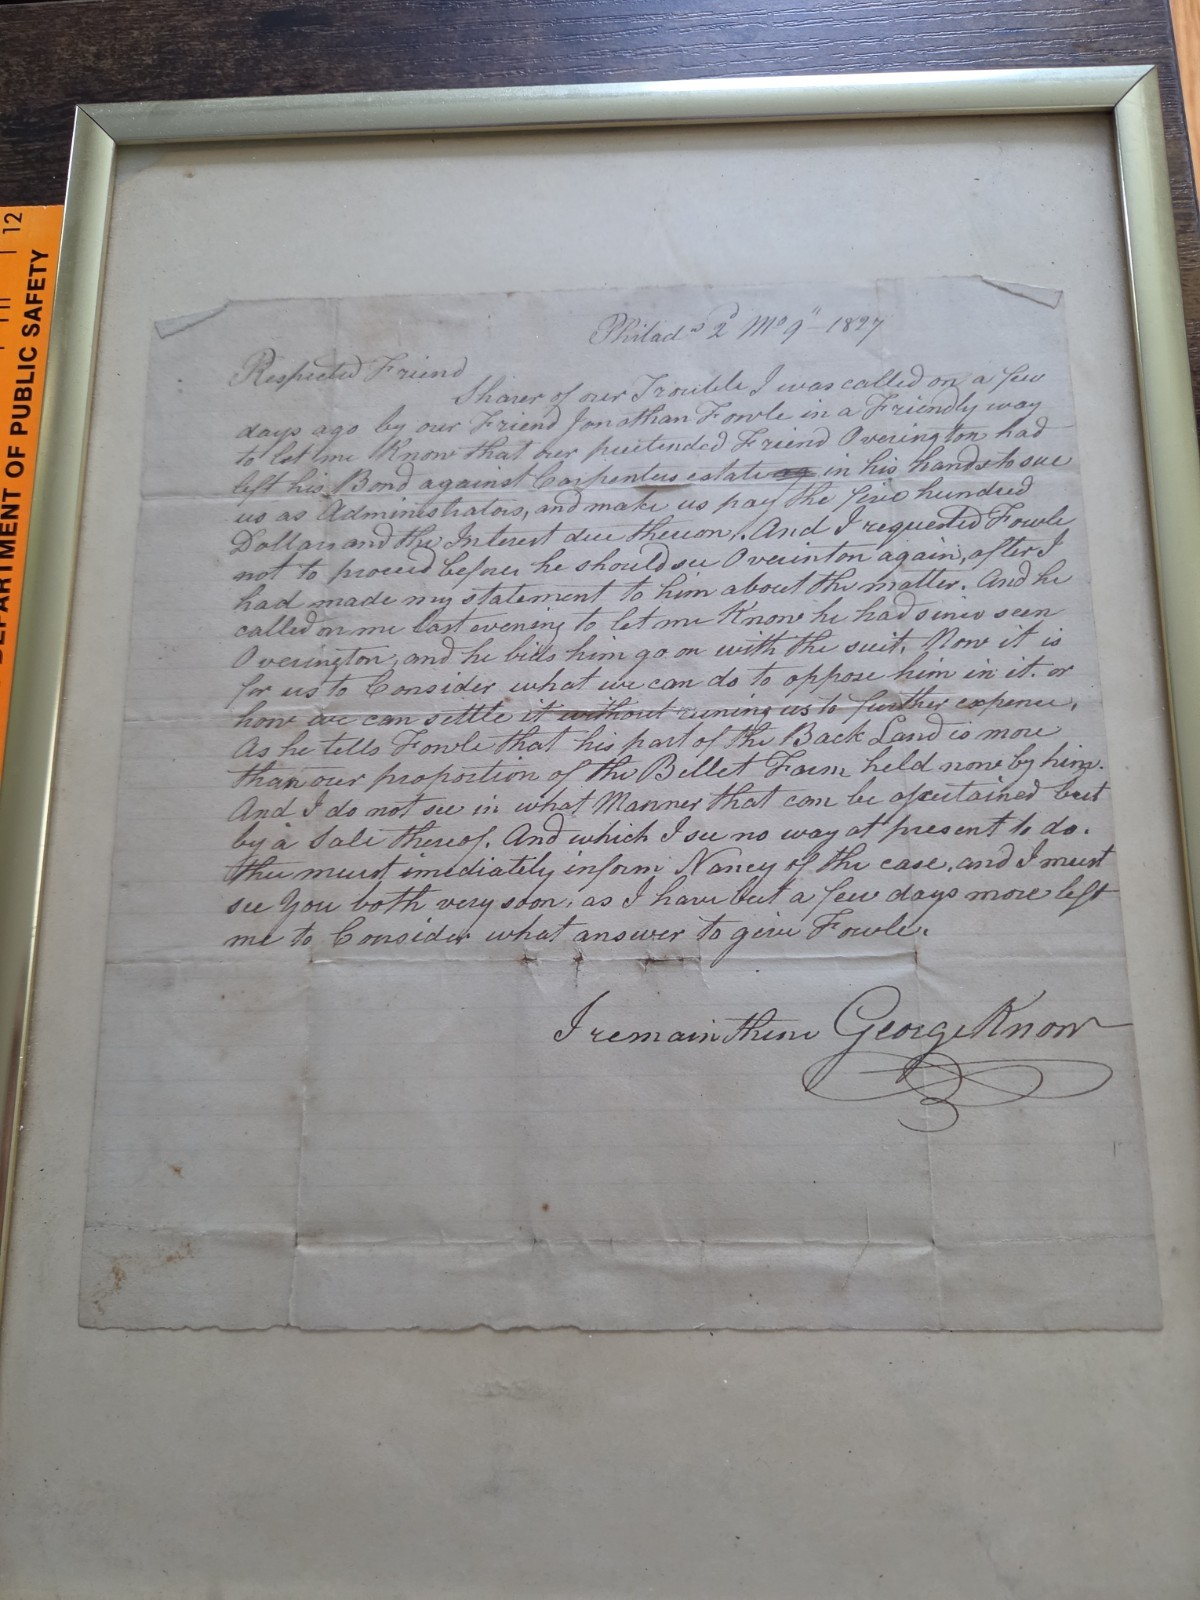 12
11
DEPARTMENT OF PUBLIC SAFETY
Philada 2d Mo 9th 1827
Respected Friend
Sharer of our Trouble I was called on a few
days ago by our Friend Jonathan Fowle in a Friendly way
to let me Know that our pretended Friend Overington had
left his Bond against Carpenters estate in his hands to sue
us as Administrators, and make us pay the five hundred
Dollars and the Interest due thereon. And I requested Fowle
not to proceed before he should see Overinton again, after I
had made my statement to him about the matter. And he
called on me last evening to let me Know he had since seen
Overington, and he bids him go on with the suit. Now it is
for us to Consider what we can do to oppose him in it. or
how we can settle it without runing us to further expence.
As he tells Fowle that his part of the Back Land is more
than our proportion of the Billet Farm held now by him.
And I do not see in what Manner that can be ascertained but
by a Sale thereof. And which I see no way at present to do.
thee must imediately inform Nancy of the case, and I must
see You both very soon, as I have but a few days more left
me to Consider what answer to give Fowle.
I remain thine George Knorr